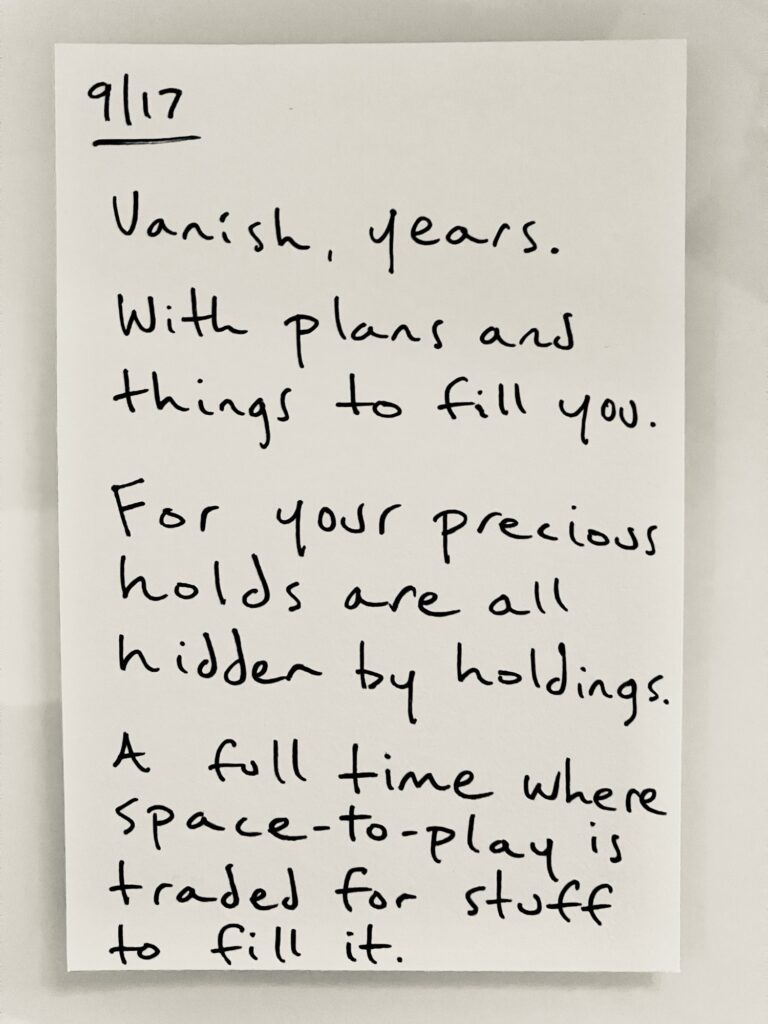 9/17
Vanish, years.
With plans and
things to fill you.
For your precious
holds are all
hidden by holdings.
A full time where
space-to-play is
traded for stuff
to fill it.